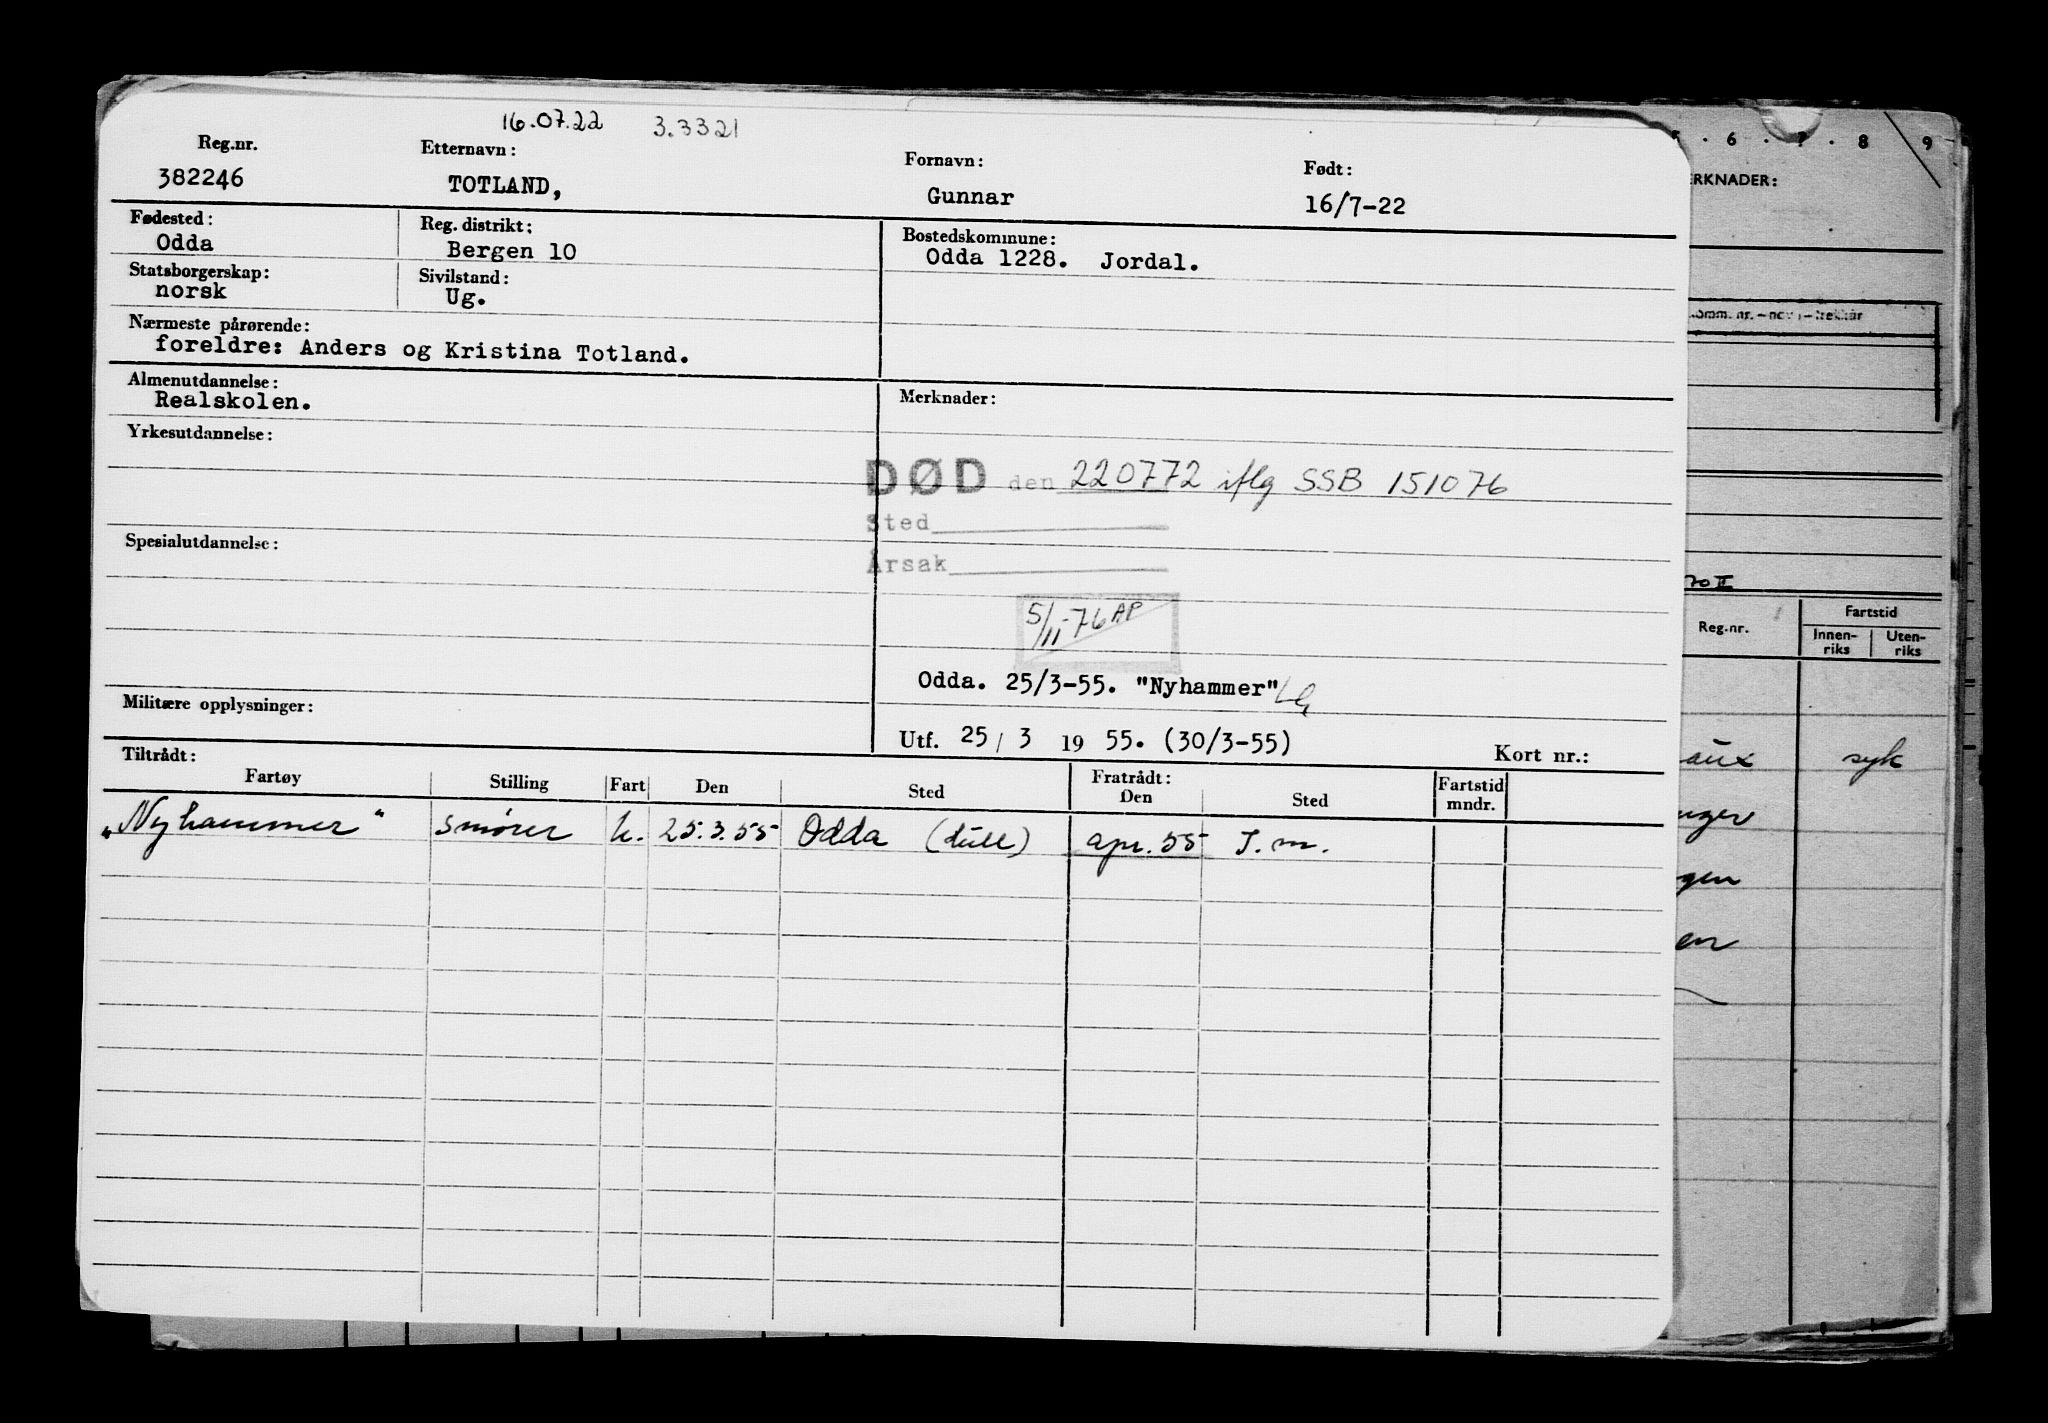 16.07.22 3.3321
Reg.nr. Etternavn: Fornavn: Født:
382246 TOTLAND, Gunnar 16/7-22
Fødested: Reg. distrikt: Bostedskommune:
Odda Bergen 10 Odda 1228. Jordal.
Statsborgerskap: Sivilstand:
norsk Ug.
Nærmeste pårørende:
foreldre: Anders og Kristina Totland.
Almenutdannelse: Merknader:
Realskolen.
Yrkesutdannelse:
DØD den 220772 iflg SSB 151076
Sted
Årsak
Spesialutdannelse:
5/11-76 AP
Odda. 25/3-55. "Nyhammer"
Militære opplysninger:
Utf. 25/3 1955. (30/3-55) Kort nr.:
Tiltrådt: Fratrådt:
Fartøy Stilling Fart Den Sted Den Sted Fartstid mndr.
„Nyhammer" smører u. 25.3.55 Odda (dull) apr. 55 I.m.
6 . 7 . 8 9
RKNADER:
omm. nr. – nov – trekkår
70 II
Reg.nr. Fartstid
Innen-riks Uten-riks
aux syk
nger
gen
en